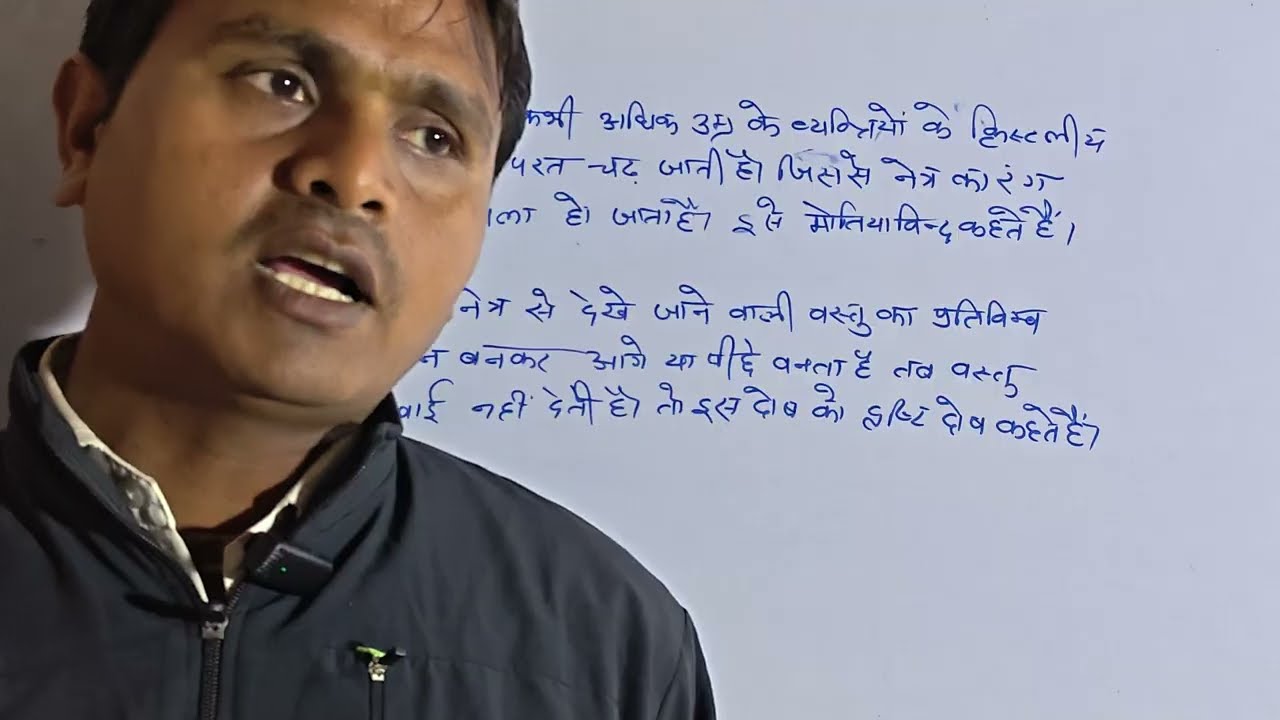 कभी अधिक उम्र के व्यक्तियों के क्रिस्टलीय
परत चढ़ जाती है। जिससे नेत्र का रंग
ला हो जाता है। इसे मोतियाविन्द कहते हैं।
नेत्र से देखे जाने वाली वस्तु का प्रतिविम्ब
न बनकर आगे या पीछे बनता है तब वस्तु
नहीं देती है। तो इस दोष को दृष्टि दोष कहते हैं।